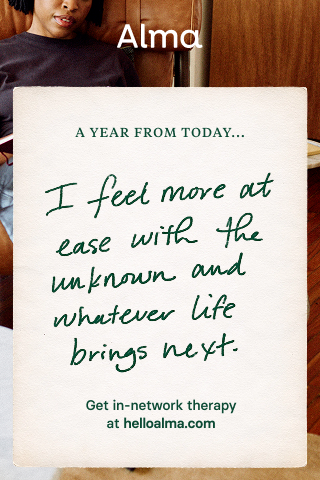 Alma
A YEAR FROM TODAY...
I feel more at
ease with the
unknown and
whatever life
brings next.
Get in-network therapy
at helloalma.com